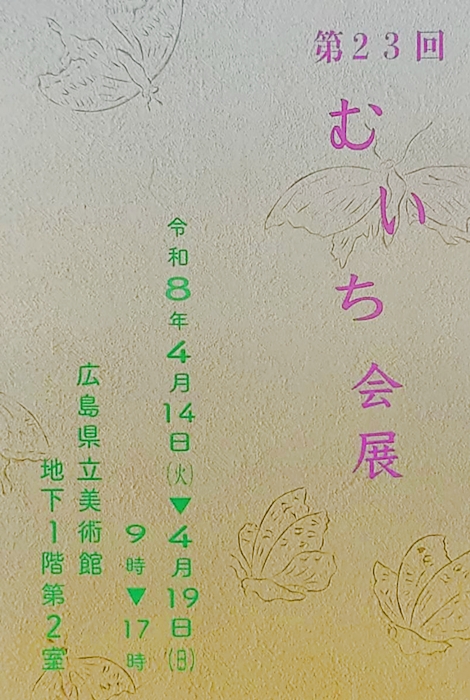 第23回
むいち会展
令和8年4月14日(火)▼4月19日(日)
9時▼17時
広島県立美術館
地下1階第2室